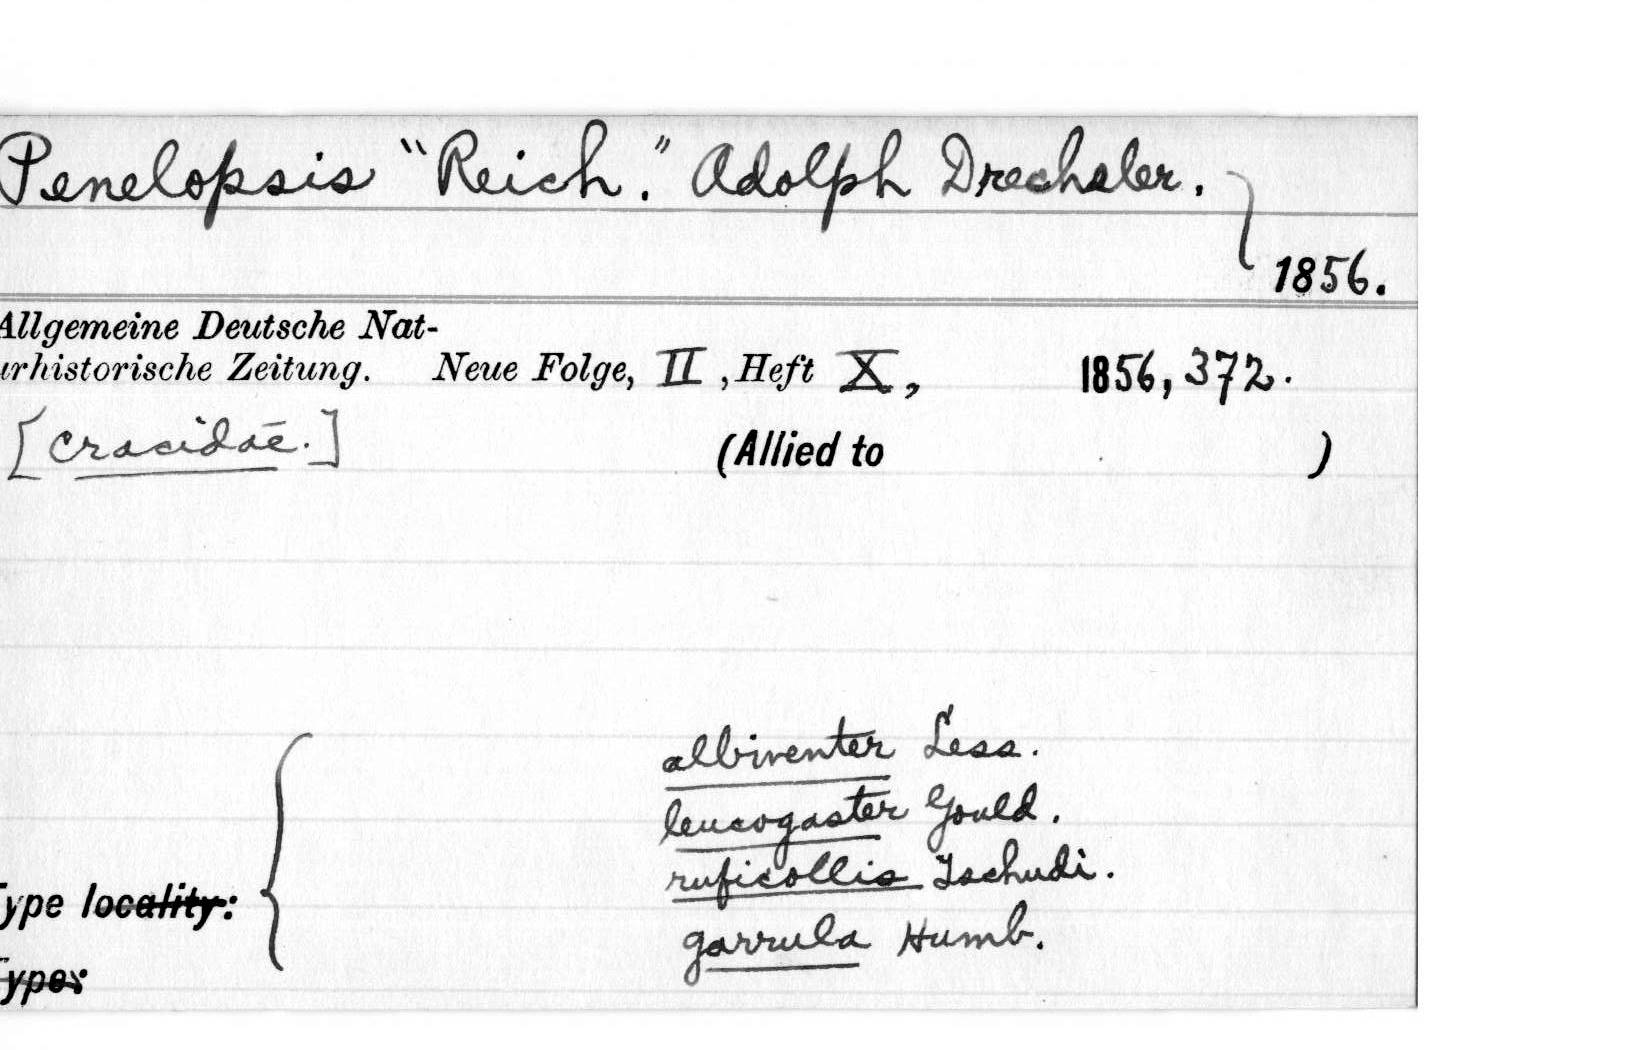 Penelopsis "Reich." Adolph Drechsler.
1856.
Allgemeine Deutsche Nat-
urhistorische Zeitung. Neue Folge, II, Heft X, 1856, 372.
[Cracidae.] (Allied to )
albiventer Less.
leucogaster Gould.
ruficollis Tschudi.
Type locality:
garrula Humb.
Type: